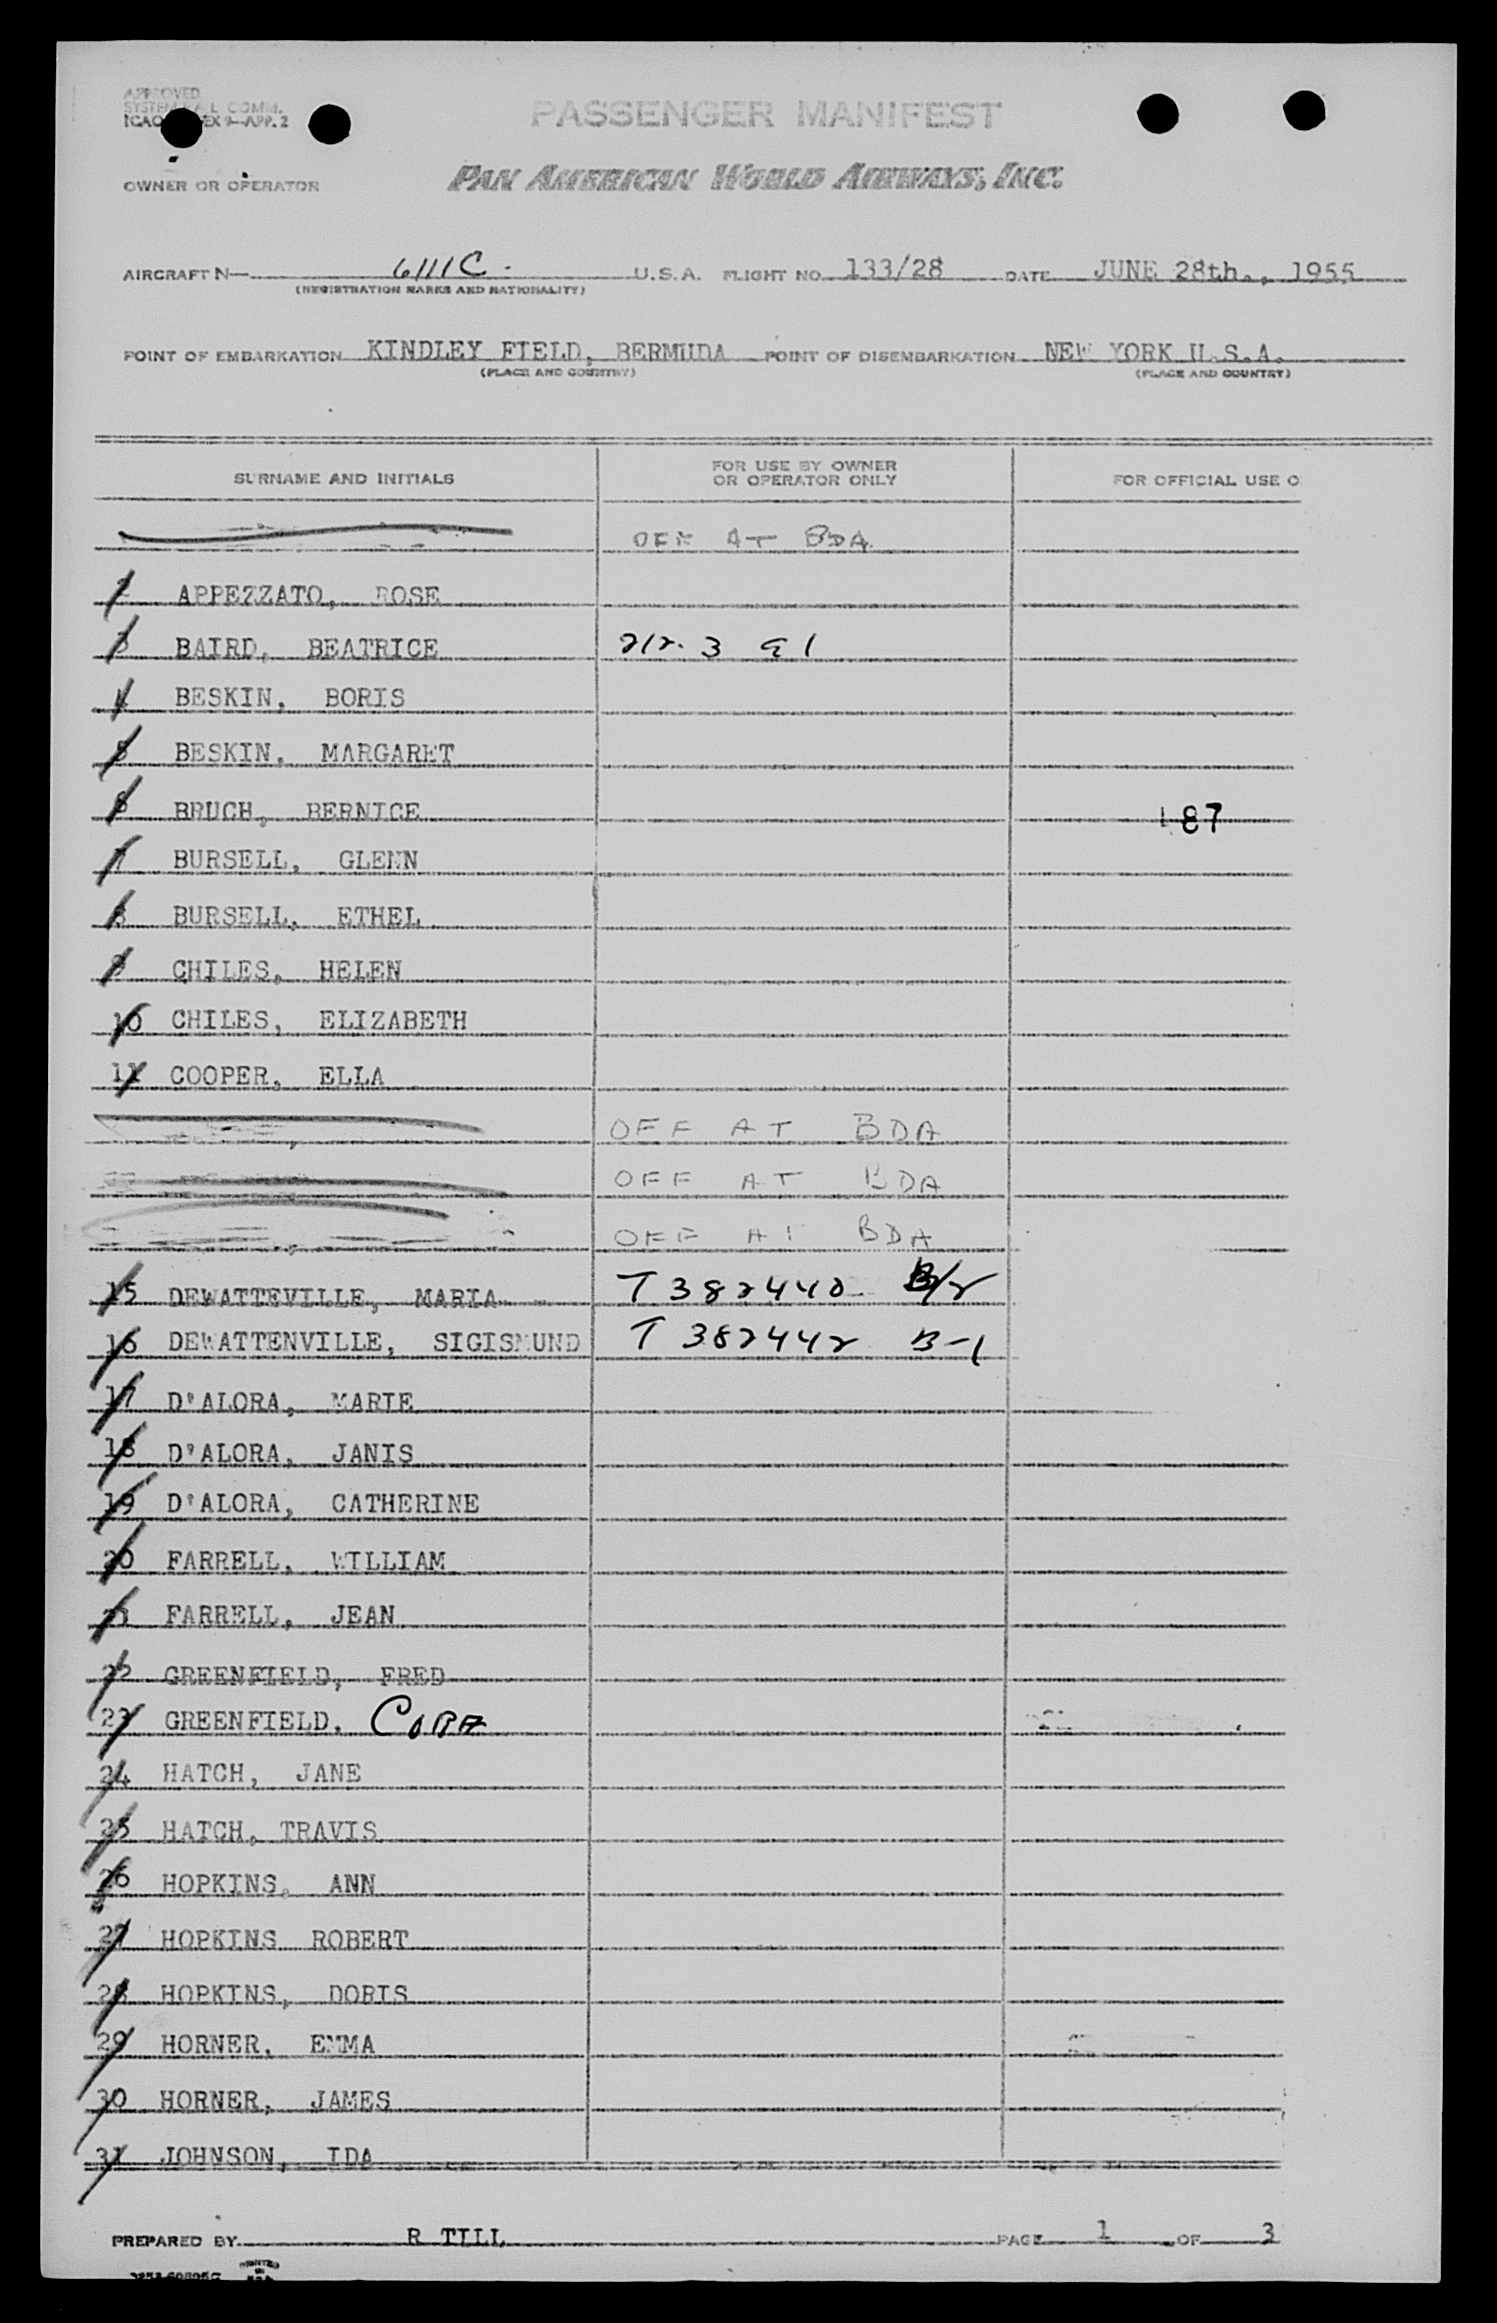 APPROVED
SYSTEM COMM.
ICAO EX 9—APP. 2
PASSENGER MANIFEST
OWNER OR OPERATOR PAN AMERICAN WORLD AIRWAYS, INC.
AIRCRAFT N— 6111C. U.S.A. FLIGHT NO. 133/28 DATE JUNE 28th., 1955
(REGISTRATION MARKS AND NATIONALITY)
POINT OF EMBARKATION KINDLEY FIELD, BERMUDA POINT OF DISEMBARKATION NEW YORK U.S.A.
(PLACE AND COUNTRY) (PLACE AND COUNTRY)
SURNAME AND INITIALS FOR USE BY OWNER OR OPERATOR ONLY FOR OFFICIAL USE O
OFF AT BDA
2 APPEZZATO, ROSE
3 BAIRD, BEATRICE 212. 3 a 1
4 BESKIN, BORIS
5 BESKIN, MARGARET
6 BRUCH, BERNICE 187
7 BURSELL, GLENN
8 BURSELL, ETHEL
9 CHILES, HELEN
10 CHILES, ELIZABETH
11 COOPER, ELLA
OFF AT BDA
OFF AT BDA
OFF AT BDA
15 DEWATTEVILLE, MARIA T 382440 B/2
16 DEWATTENVILLE, SIGISMUND T 382442 B-1
17 D'ALORA, MARIE
18 D'ALORA, JANIS
19 D'ALORA, CATHERINE
20 FARRELL, WILLIAM
21 FARRELL, JEAN
22 GREENFIELD, FRED
23 GREENFIELD, CORA
24 HATCH, JANE
25 HATCH, TRAVIS
26 HOPKINS, ANN
27 HOPKINS ROBERT
28 HOPKINS, DORIS
29 HORNER, EMMA
30 HORNER, JAMES
31 JOHNSON, IDA
PREPARED BY R TILL PAGE 1 OF 3
PRINTED IN U.S.A.